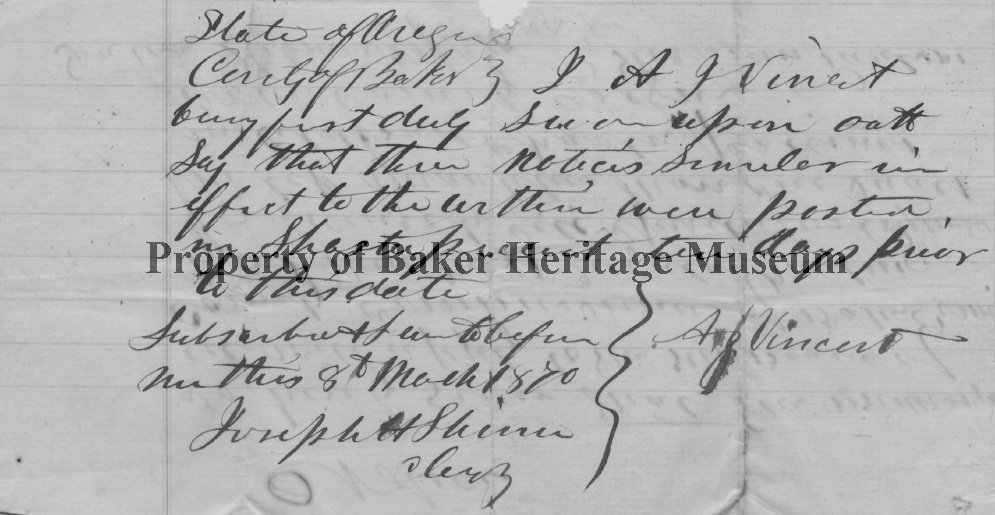 State of Oregon
County of Baker } I A J Vincent
being first duly sworn upon oath
Say that three notices similar in
effect to the within were posted
in Shasta precinct ten days prior
to this date
Property of Baker Heritage Museum
Subscribed & sworn to before
me this 8th March 1870
A J Vincent
Joseph H Shinn
Clerk